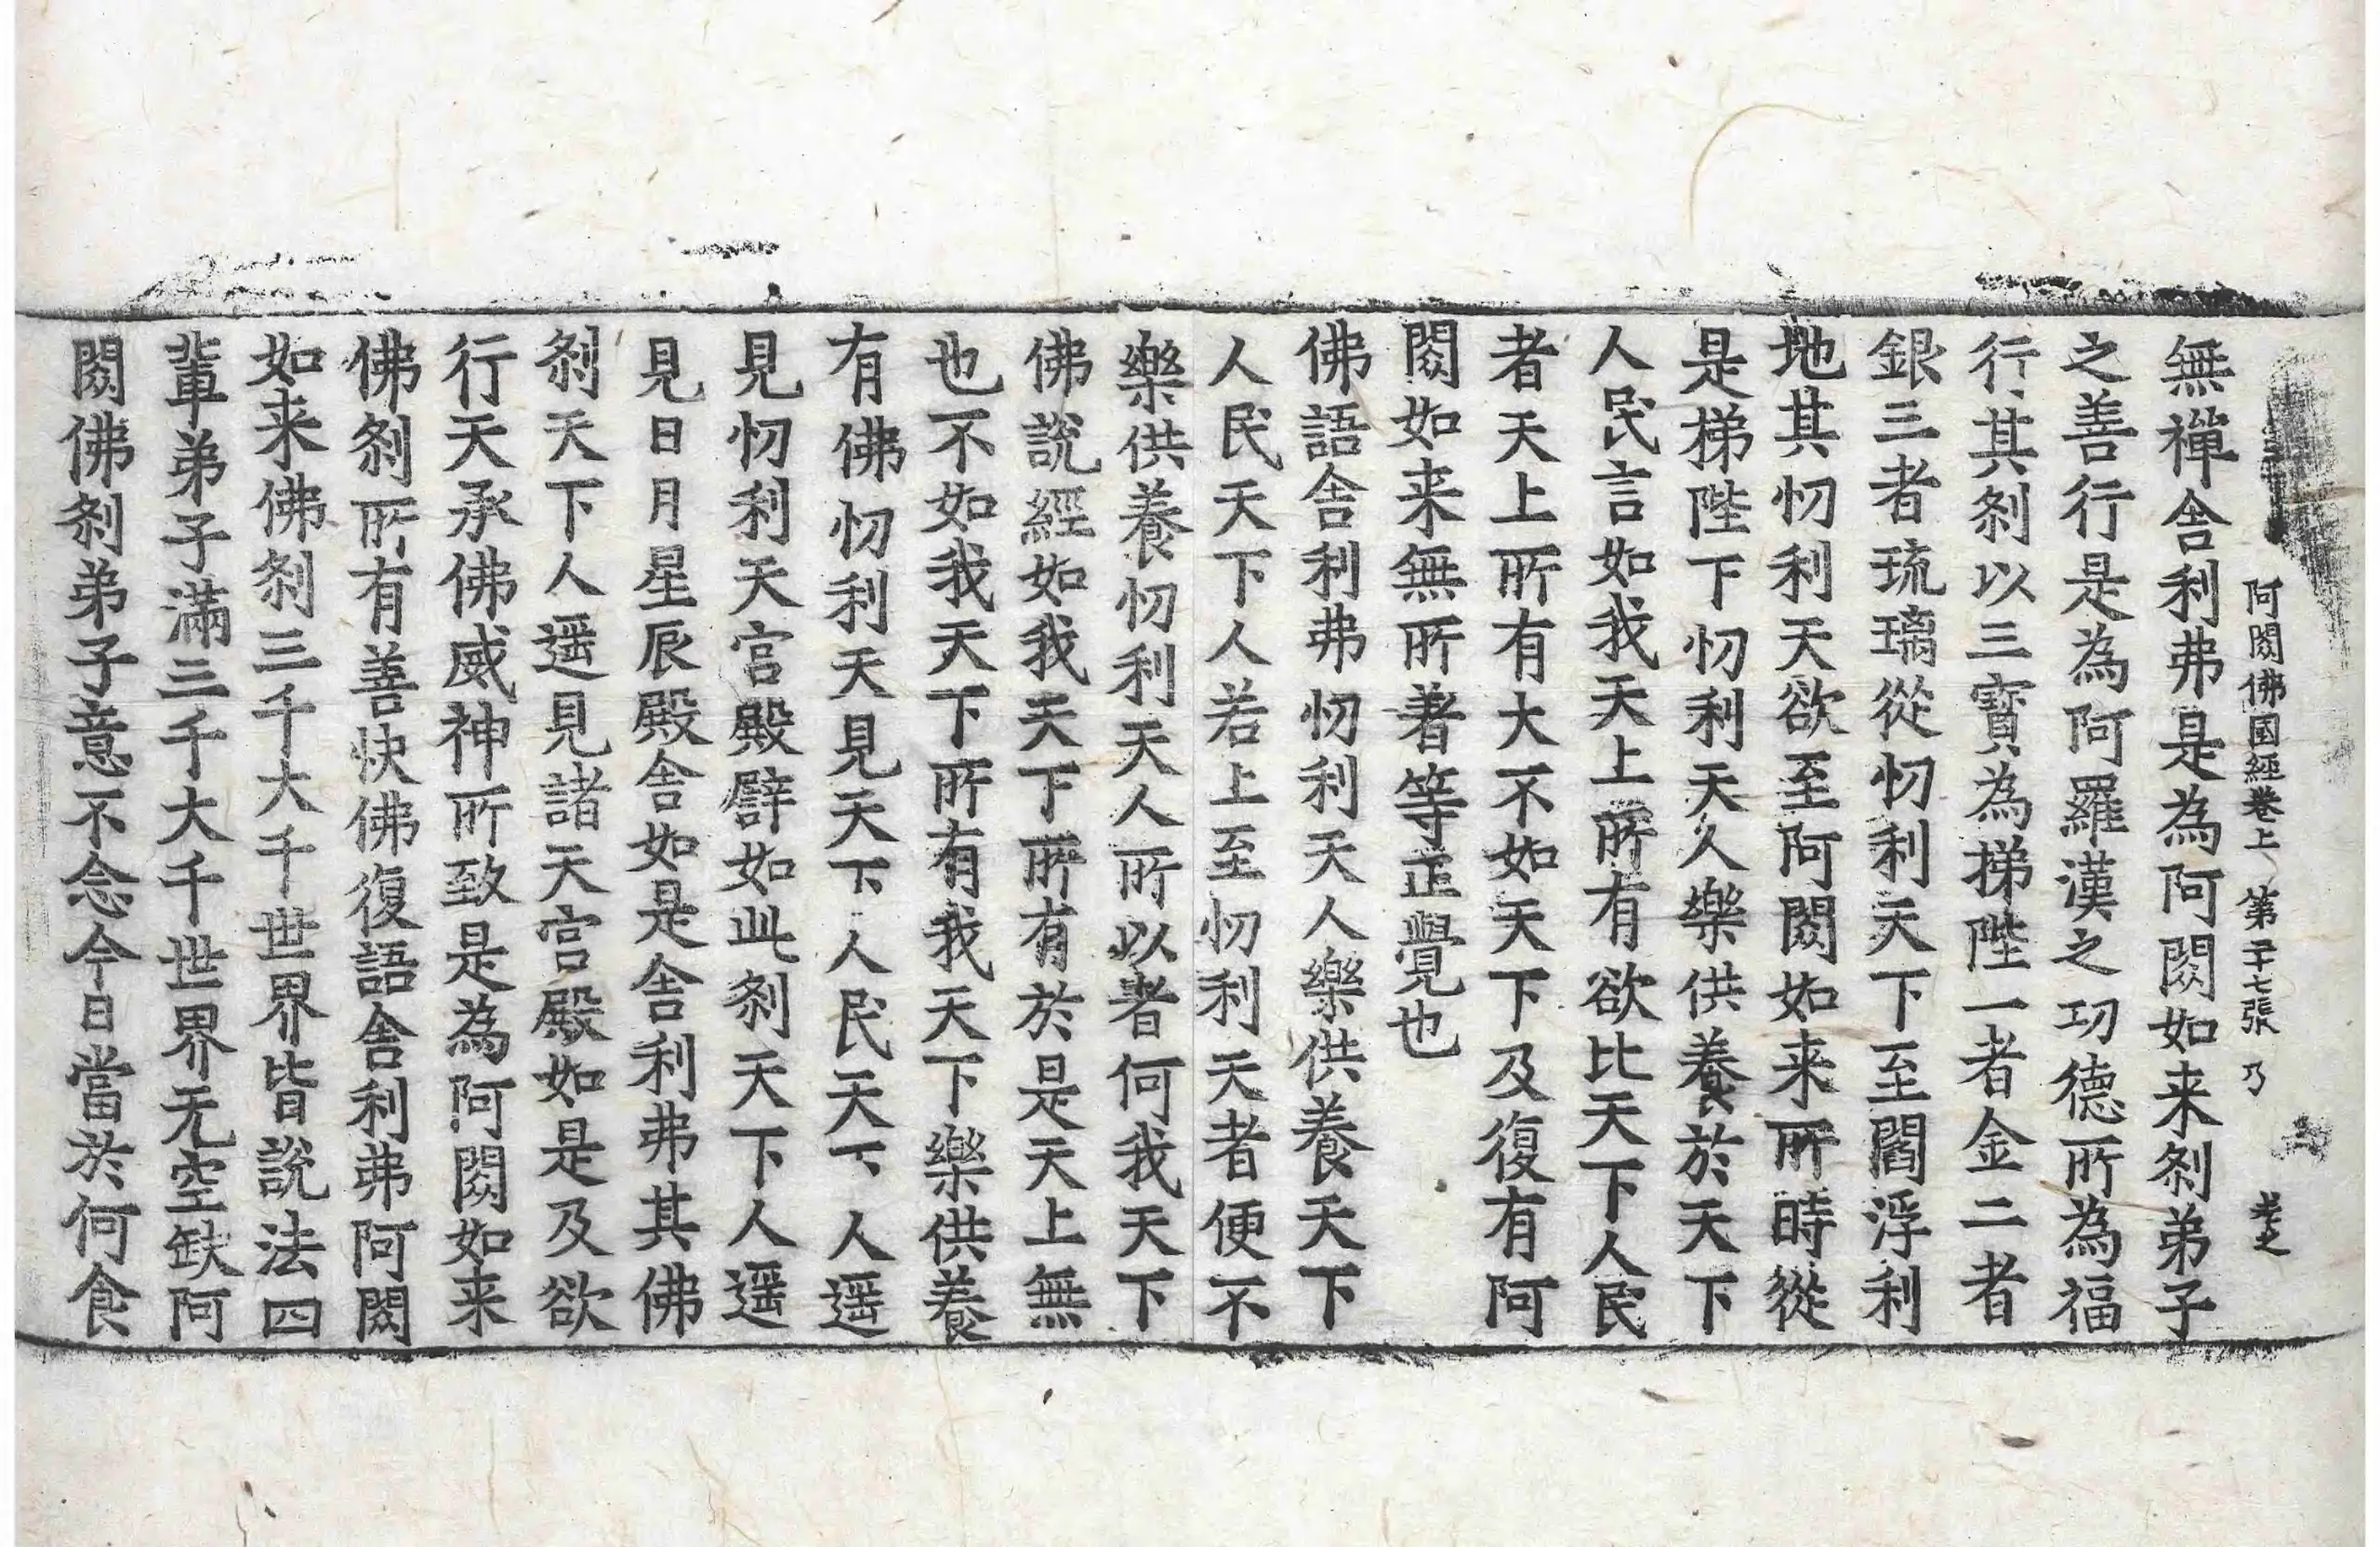 阿閦佛國經卷上 第二十七張 乃
無禪舍利弗是為阿閦如来剎弟子
之善行是為阿羅漢之功德所為福
行其剎以三寶為梯陛一者金二者
銀三者琉璃從忉利天下至閻浮利
地其忉利天欲至阿閦如来所時從
是梯陛下忉利天人樂供養於天下
人民言如我天上所有欲比天下人民
者天上所有大不如天下及復有阿
閦如来無所著等正覺也
佛語舍利弗忉利天人樂供養天下
人民天下人若上至忉利天者便不
樂供養忉利天人所以者何我天下
佛說經如我天下所有於是天上無
也不如我天下所有我天下樂供養
有佛忉利天見天下人民天下人遥
見忉利天宮殿譬如此剎天下人遥
見日月星辰殿舍如是舍利弗其佛
剎天下人遥見諸天宮殿如是及欲
行天承佛威神所致是為阿閦如来
佛剎所有善快佛復語舍利弗阿閦
如来佛剎三千大千世界皆說法四
輩弟子滿三千大千世界无空缺阿
閦佛剎弟子意不念今日當於何食